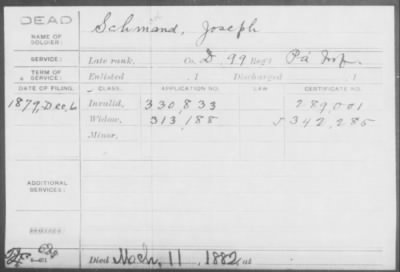 DEAD
NAME OF SOLDIER: Schmand, Joseph
SERVICE: Late rank, Co. D, 99 Reg't Pa Inf.
TERM OF SERVICE: Enlisted , 1 Discharged , 1
DATE OF FILING. CLASS. APPLICATION NO. LAW CERTIFICATE NO.
1879, Dec, 6 Invalid, 330,833 289,001
Widow, 313,188 342,285
Minor,
ADDITIONAL SERVICES:
REMARKS:
Died Mach, 11, 1882, at